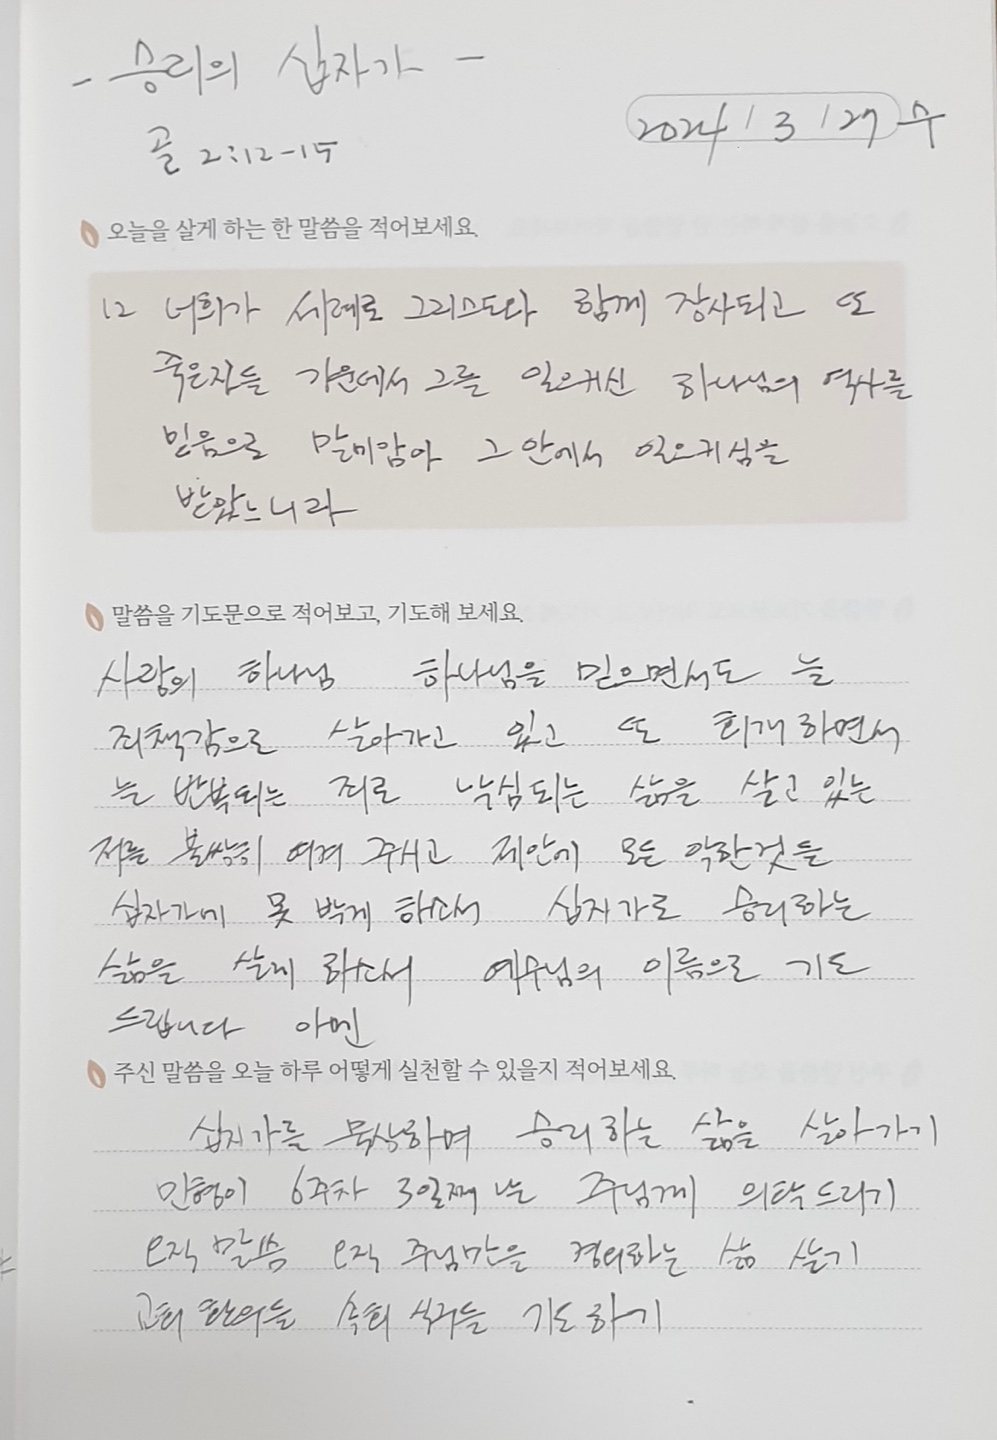 - 승리의 십자가 -
골 2:12-15
2024 / 3 / 27 수
오늘을 살게 하는 한 말씀을 적어보세요.
12 너희가 세례로 그리스도와 함께 장사되고 또
죽은자들 가운데서 그를 일으키신 하나님의 역사를
믿음으로 말미암아 그 안에서 일으키심을
받았느니라
말씀을 기도문으로 적어보고, 기도해 보세요.
사랑의 하나님 하나님을 믿으면서도 늘
죄책감으로 살아가고 있고 또 회개하면서
늘 반복되는 죄로 낙심되는 삶을 살고 있는
저를 불쌍히 여겨 주시고 제안에 모든 악한것들
십자가에 못 박게 하소서 십자가로 승리하는
삶을 살게 하소서 예수님의 이름으로 기도
드립니다 아멘
주신 말씀을 오늘 하루 어떻게 실천할 수 있을지 적어보세요.
십자가를 묵상하며 승리하는 삶을 살아가기
민형이 6주차 3일째 주님께 의탁드리기
오직 말씀 오직 주님만을 경외하는 삶 살기
교회 환우들 속회 식구들 기도하기